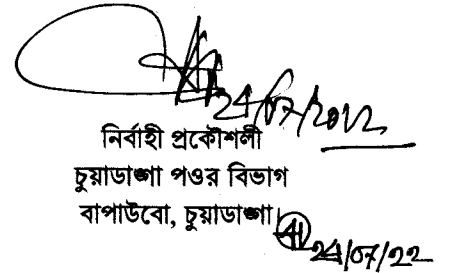 24/07/2022
নির্বাহী প্রকৌশলী
চুয়াডাঙ্গা পওর বিভাগ
বাপাউবো, চুয়াডাঙ্গা।
24/07/22